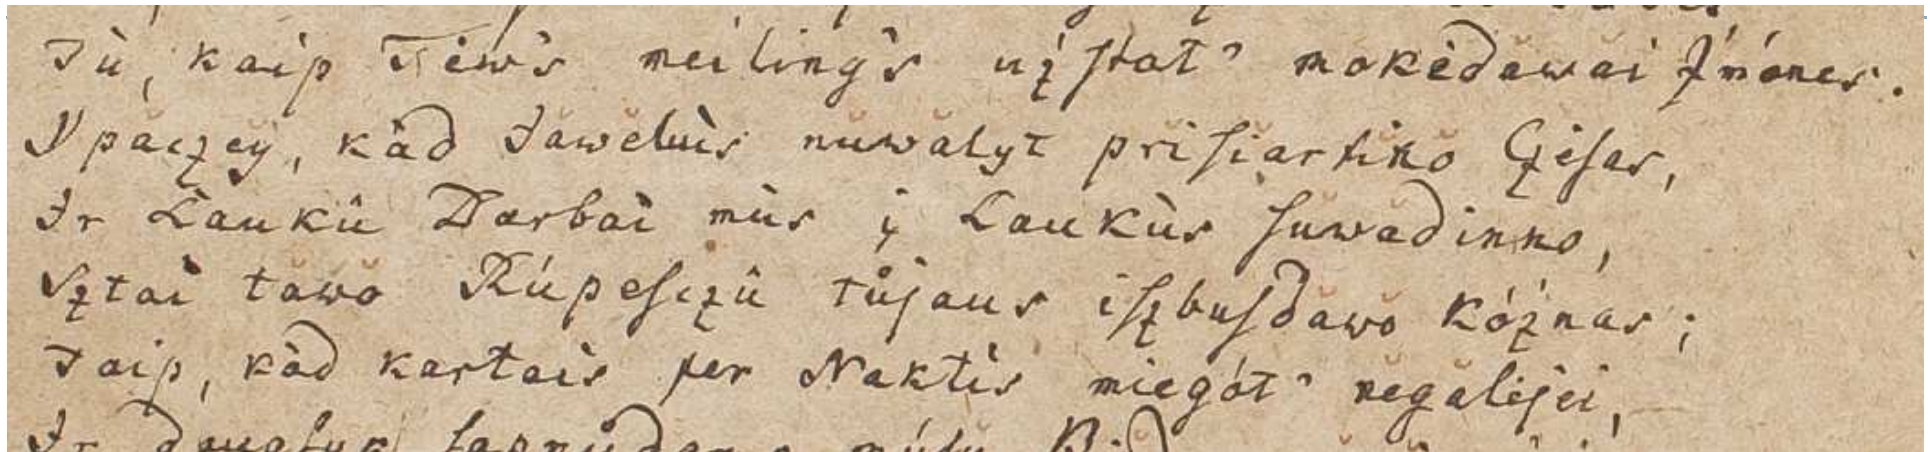 Tù, kaip Tėw's meiling's użstot' mokėdăwăi Żmónes.
Ypăczey, kàd Jăwelùs nŭwălyt prisĭartĭnŏ Czėsas,
Ir Laukû Darbai mùs į Laukùs sŭwădinno,
Sztai tăwŏ Rúpesczû tůjaus iszbusdăwŏ kóżnas;
Taip, kàd kartais per Naktis miegót' nĕgălėjei,
Ir